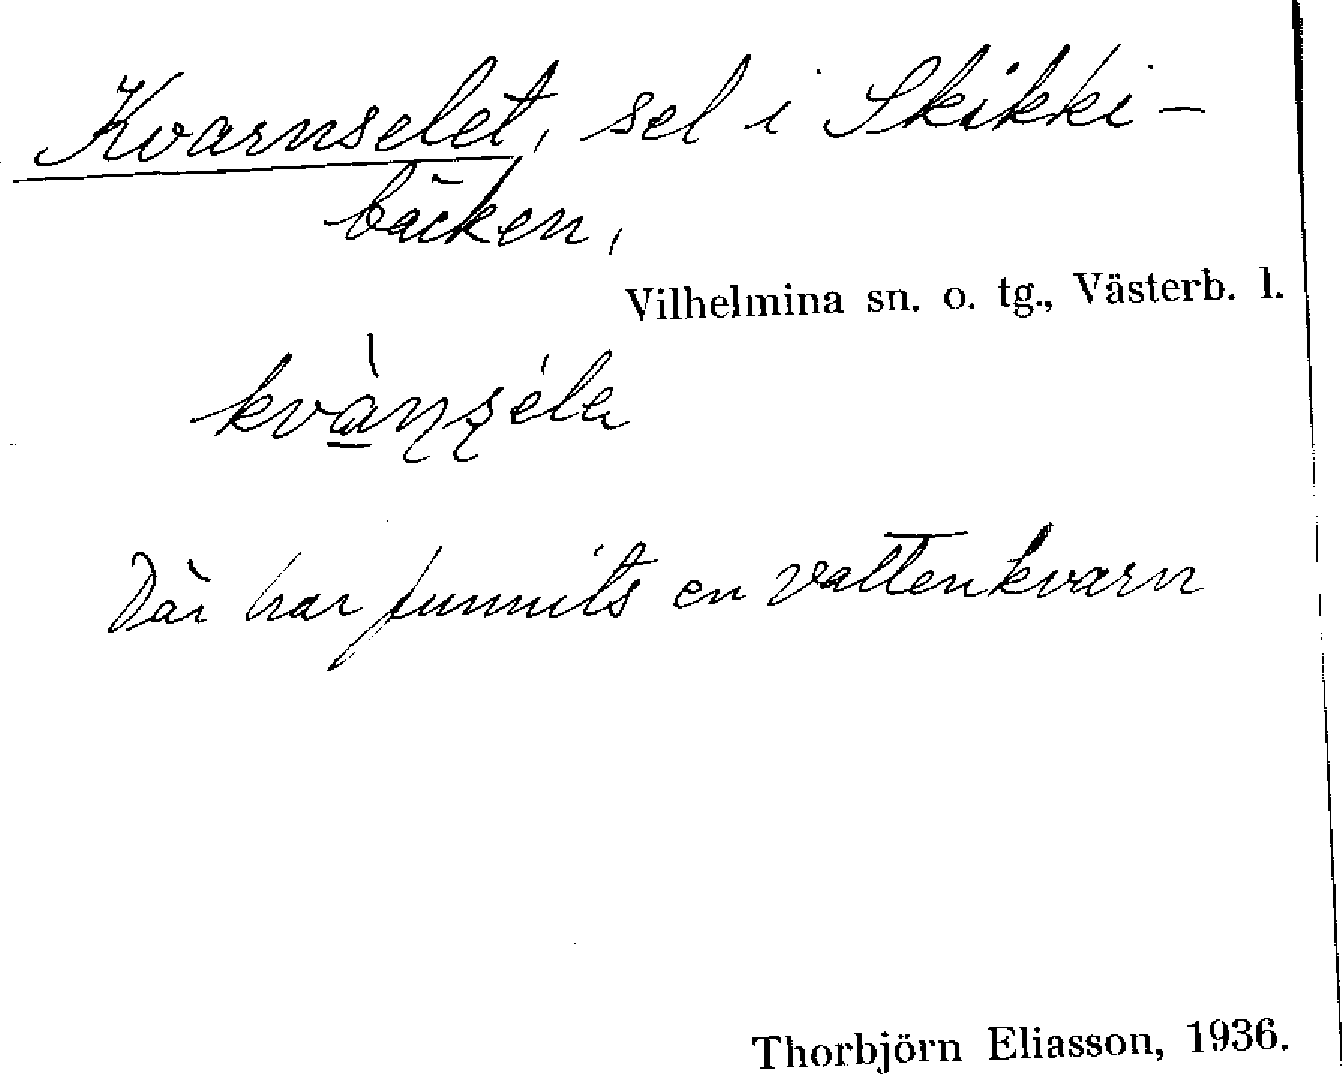 Kvarnselet, sel i Skikki-
bäcken,
Vilhelmina sn. o. tg., Västerb. l.
kvàṇṣéla
Där har funnits en vattenkvarn
Thorbjörn Eliasson, 1936.